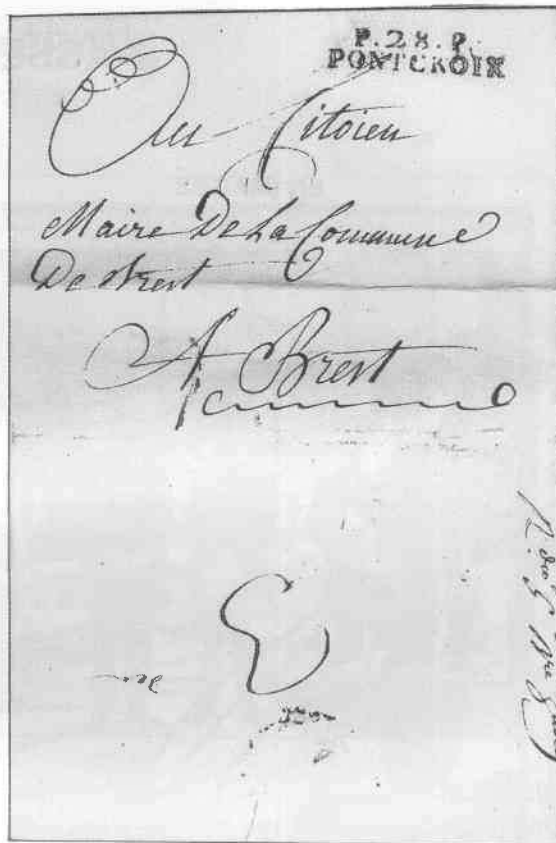 P.28.P.
PONTCROIX
Au Citoien
Maire De La Commune
De Brest
A Brest